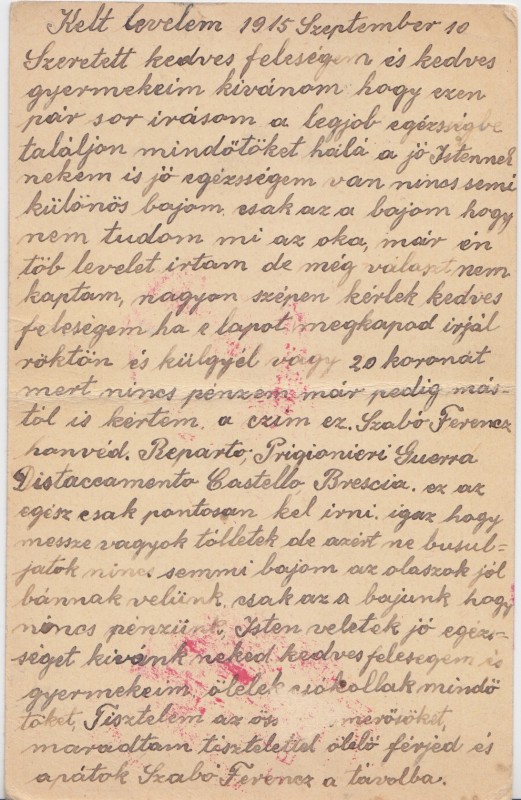 Kelt levelem 1915 Szeptember 10
Szeretett kedves feleségem és kedves
gyermekeim kivánom hogy ezen
pár sor irásom a legjob egézségbe
találjon mindőtöket hálá a jó Istennek
nekem is jó egézsségem van nincs semi
különös bajom csak az a bajom hogy
nem tudom mi az oka, már én
töb levelet irtam de még választ nem
kaptam, nagyon szépen kérlek kedves
feleségem ha e lapot megkapod irjál
röktön és külgyél vagy 20 koronát
mert nincs pénzem már pedig más-
tól is kértem. a czim ez. Szabó Ferencz
honvéd. Reparto, Prigionieri Guerra
Distaccamento Castello, Brescia. ez az
egész csak pontosan kel irni. igaz hogy
messze vagyok tölletek de azért ne busul-
jatok nincs semmi bajom az olaszok jól
bánnak velünk, csak az a bajunk hogy
nincs pénzünk, Isten veletek jó egézs-
séget kivánk neked kedves feleségem és
gyermekeim, ölelek csokollak mindő
töket, Tisztelem az öss merősöket,
maradtam tisztelettel ölelő férjed és
apátok Szabó Ferencz a távolba.